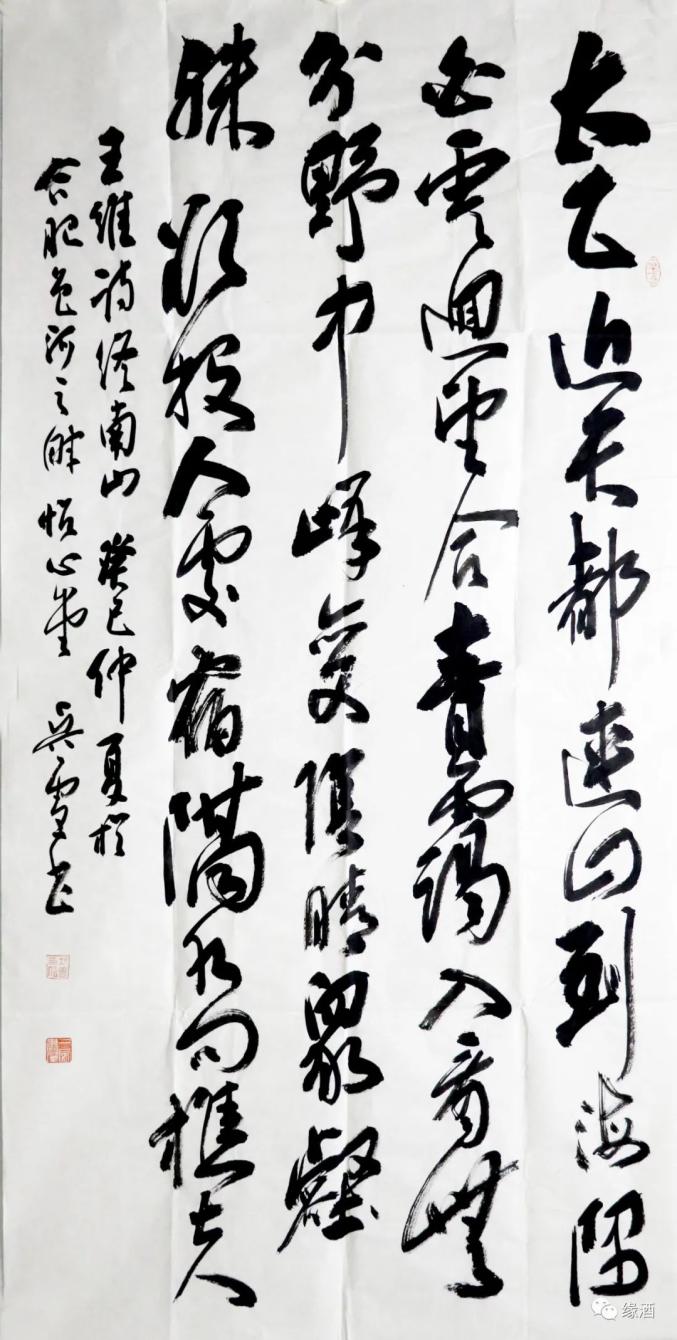 太乙近天都連山到海隅
白雲迴望合青靄入看無
分野中峰變陰晴眾壑
殊欲投人處宿隔水問樵夫
王維詩終南山 癸巳仲夏於
合肥包河之畔怡心堂 吳雪書
缘酒